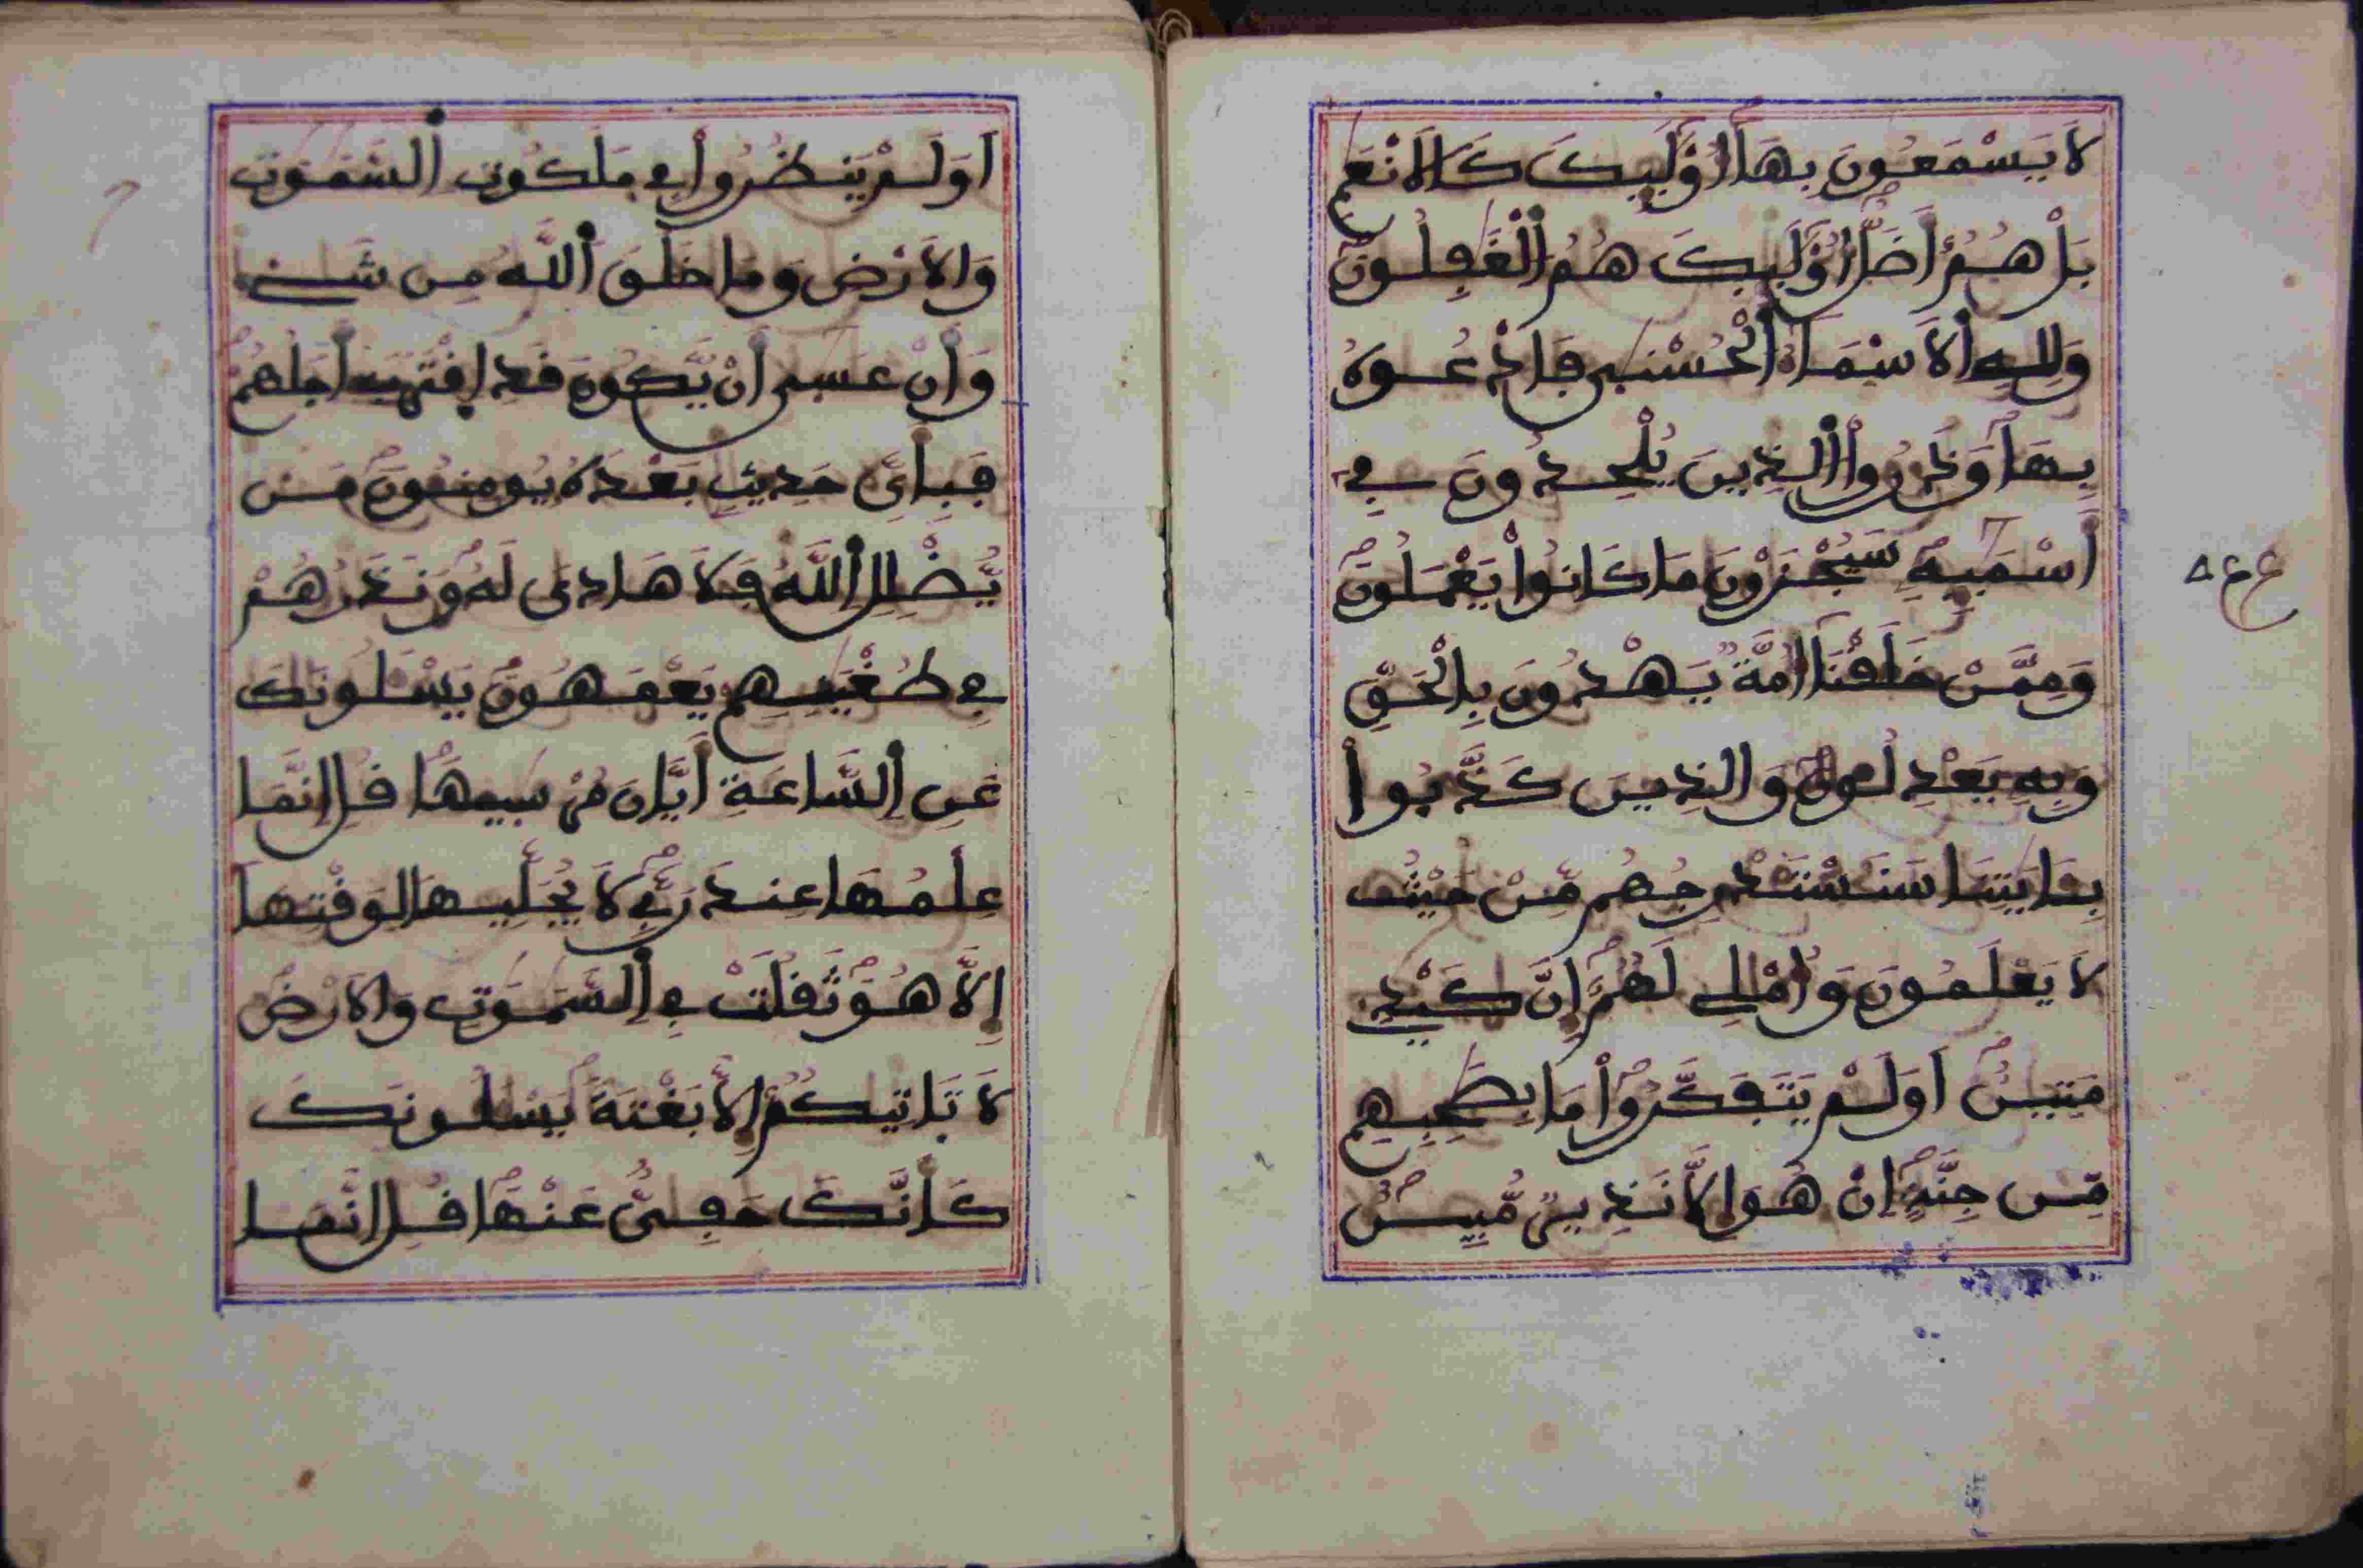 لَا يَسْمَعُونَ بِهَا أُوْلَٰٓئِكَ كَالَانْعَٰمِ
بَلْ هُمُ أَضَلُّ أُوْلَٰٓئِكَ هُمُ الْغَٰفِلُونَ
وَلِلهِ الَاسْمَاءُ الْحُسْنَىٰ فَادْعُوهُ
بِهَا وَذَرُوا الذِينَ يُلْحِدُونَ فِي
أَسْمَٰٓئِهِ سَيُجْزَوْنَ مَا كَانُوا يَعْمَلُونَ
وَمِمَّنْ خَلَقْنَا أُمَّةٌ يَهْدُونَ بِالْحَقِّ
وَبِهِ يَعْدِلُونَ وَالذِينَ كَذَّبُوا
بِـَٔايَٰتِنَا سَنَسْتَدْرِجُهُم مِّنْ حَيْثُ
لَا يَعْلَمُونَ وَأُمْلِي لَهُمُ إِنَّ كَيْدِي
مَتِينٌ أَوَلَمْ يَتَفَكَّرُوا مَا بِصَٰحِبِهِم
مِّن جِنَّةٍ إِنْ هُوَ إِلَّا نَذِيرٌ مُّبِينٌ
ع ع ۵
أَوَلَمْ يَنظُرُوا فِي مَلَكُوتِ السَّمَٰوَٰتِ
وَالَارْضِ وَمَا خَلَقَ اللَّهُ مِن شَيْءٍ
وَأَنْ عَسَىٰ أَنْ يَّكُونَ قَدِ اِقْتَرَبَ أَجَلُهُمْ
فَبِأَيِّ حَدِيثٍ بَعْدَهُ يُومِنُونَ مَنْ
يُّضْلِلِ اللَّهُ فَلَا هَادِيَ لَهُ وَنَذَرُهُمْ
فِي طُغْيَٰنِهِمْ يَعْمَهُونَ يَسْـَٔلُونَكَ
عَنِ السَّاعَةِ أَيَّانَ مُرْسَيٰهَا قُلِ انَّمَا
عِلْمُهَا عِندَ رَبِّي لَا يُجَلِّيهَا لِوَقْتِهَا
إِلَّا هُوَ ثَقُلَتْ فِي السَّمَٰوَٰتِ وَالَارْضِ
لَا تَاتِيكُمُ إِلَّا بَغْتَةً يَسْـَٔلُونَكَ
كَأَنَّكَ حَفِيٌّ عَنْهَا قُلِ انَّمَا